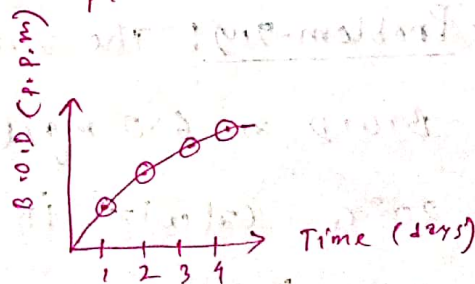 B.O.D (p.p.m)
1 2 3 4
Time (days)